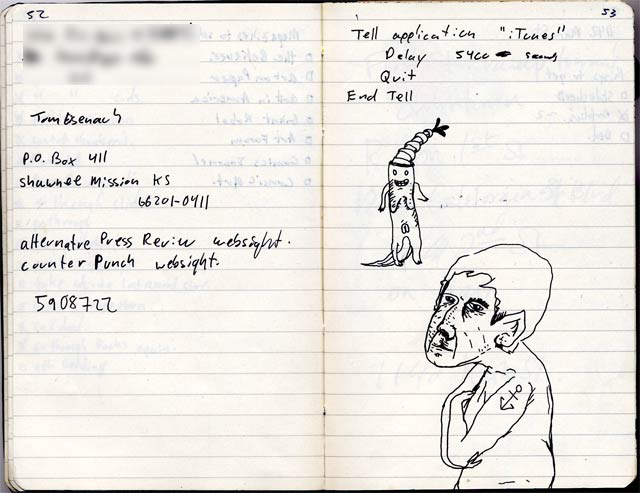 52
Tom Esenach
P.O. Box 411
shawnee Mission KS
66201-0411
alternative Press Review websight.
counter Punch websight.
5908722
53
Tell application "iTunes"
Delay 5400 seconds
Quit
End Tell